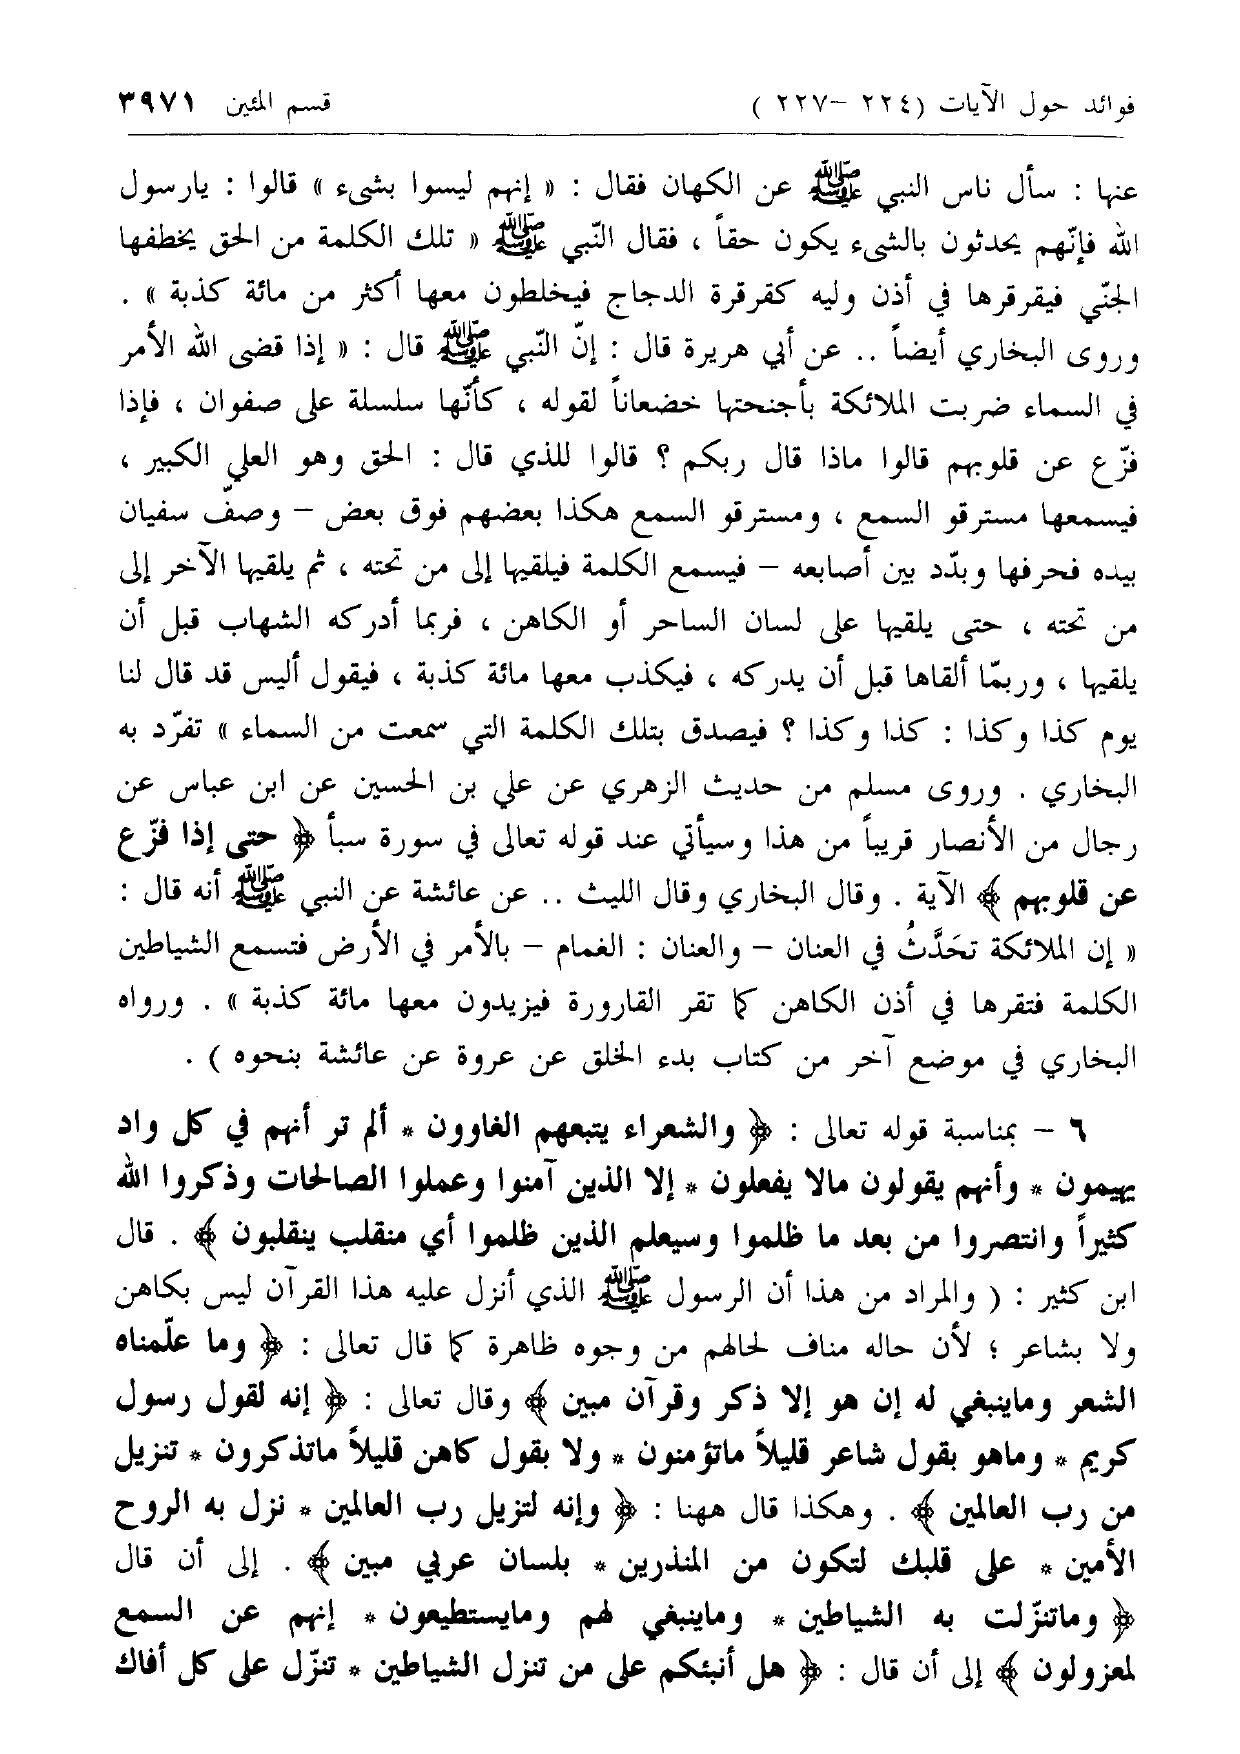 فوائد حول الآيات (٢٢٤ –٢٢٧ ) قسم المئين ٣٩٧١
عنها : سأل ناس النبي ﷺ عن الكهان فقال : « إنهم ليسوا بشىء » قالوا : يارسول
الله فإنّهم يحدثون بالشىء يكون حقاً ، فقال النّبي ﷺ « تلك الكلمة من الحق يخطفها
الجنّي فيقرقرها في أذن وليه كقرقرة الدجاج فيخلطون معها أكثر من مائة كذبة » .
وروى البخاري أيضاً .. عن أبي هريرة قال : إنّ النّبي ﷺ قال : « إذا قضى الله الأمر
في السماء ضربت الملائكة بأجنحتها خضعاناً لقوله ، كأنّها سلسلة على صفوان ، فإذا
فزّع عن قلوبهم قالوا ماذا قال ربكم ؟ قالوا للذي قال : الحق وهو العلي الكبير ،
فيسمعها مسترقو السمع ، ومسترقو السمع هكذا بعضهم فوق بعض – وصفّ سفيان
بيده فحرفها وبدّد بين أصابعه – فيسمع الكلمة فيلقيها إلى من تحته ، ثم يلقيها الآخر إلى
من تحته ، حتى يلقيها على لسان الساحر أو الكاهن ، فربما أدركه الشهاب قبل أن
يلقيها ، وربمّا ألقاها قبل أن يدركه ، فيكذب معها مائة كذبة ، فيقول أليس قد قال لنا
يوم كذا وكذا : كذا وكذا ؟ فيصدق بتلك الكلمة التي سمعت من السماء » تفرّد به
البخاري . وروى مسلم من حديث الزهري عن علي بن الحسين عن ابن عباس عن
رجال من الأنصار قريباً من هذا وسيأتي عند قوله تعالى في سورة سبأ ﴿ حتى إذا فزّع
عن قلوبهم ﴾ الآية . وقال البخاري وقال الليث .. عن عائشة عن النبي ﷺ أنه قال :
« إن الملائكة تحَدَّثُ في العنان – والعنان : الغمام – بالأمر في الأرض فتسمع الشياطين
الكلمة فتقرها في أذن الكاهن كما تقر القارورة فيزيدون معها مائة كذبة » . ورواه
البخاري في موضع آخر من كتاب بدء الخلق عن عروة عن عائشة بنحوه ) .
٦ – بمناسبة قوله تعالى : ﴿ والشعراء يتبعهم الغاوون * ألم تر أنهم في كل واد
يهيمون * وأنهم يقولون مالا يفعلون * إلا الذين آمنوا وعملوا الصالحات وذكروا الله
كثيراً وانتصروا من بعد ما ظلموا وسيعلم الذين ظلموا أي منقلب ينقلبون ﴾ . قال
ابن كثير : ( والمراد من هذا أن الرسول ﷺ الذي أنزل عليه هذا القرآن ليس بكاهن
ولا بشاعر ؛ لأن حاله مناف لحالهم من وجوه ظاهرة كما قال تعالى : ﴿ وما علّمناه
الشعر وماينبغي له إن هو إلا ذكر وقرآن مبين ﴾ وقال تعالى : ﴿ إنه لقول رسول
كريم * وماهو بقول شاعر قليلاً ماتؤمنون * ولا بقول كاهن قليلاً ماتذكرون * تنزيل
من رب العالمين ﴾ . وهكذا قال ههنا : ﴿ وإنه لتزيل رب العالمين * نزل به الروح
الأمين * على قلبك لتكون من المنذرين * بلسان عربي مبين ﴾ . إلى أن قال
﴿ وماتنزّلت به الشياطين * وماينبغي لهم ومايستطيعون * إنهم عن السمع
لمعزولون ﴾ إلى أن قال : ﴿ هل أنبئكم على من تنزل الشياطين * تنزّل على كل أفاك